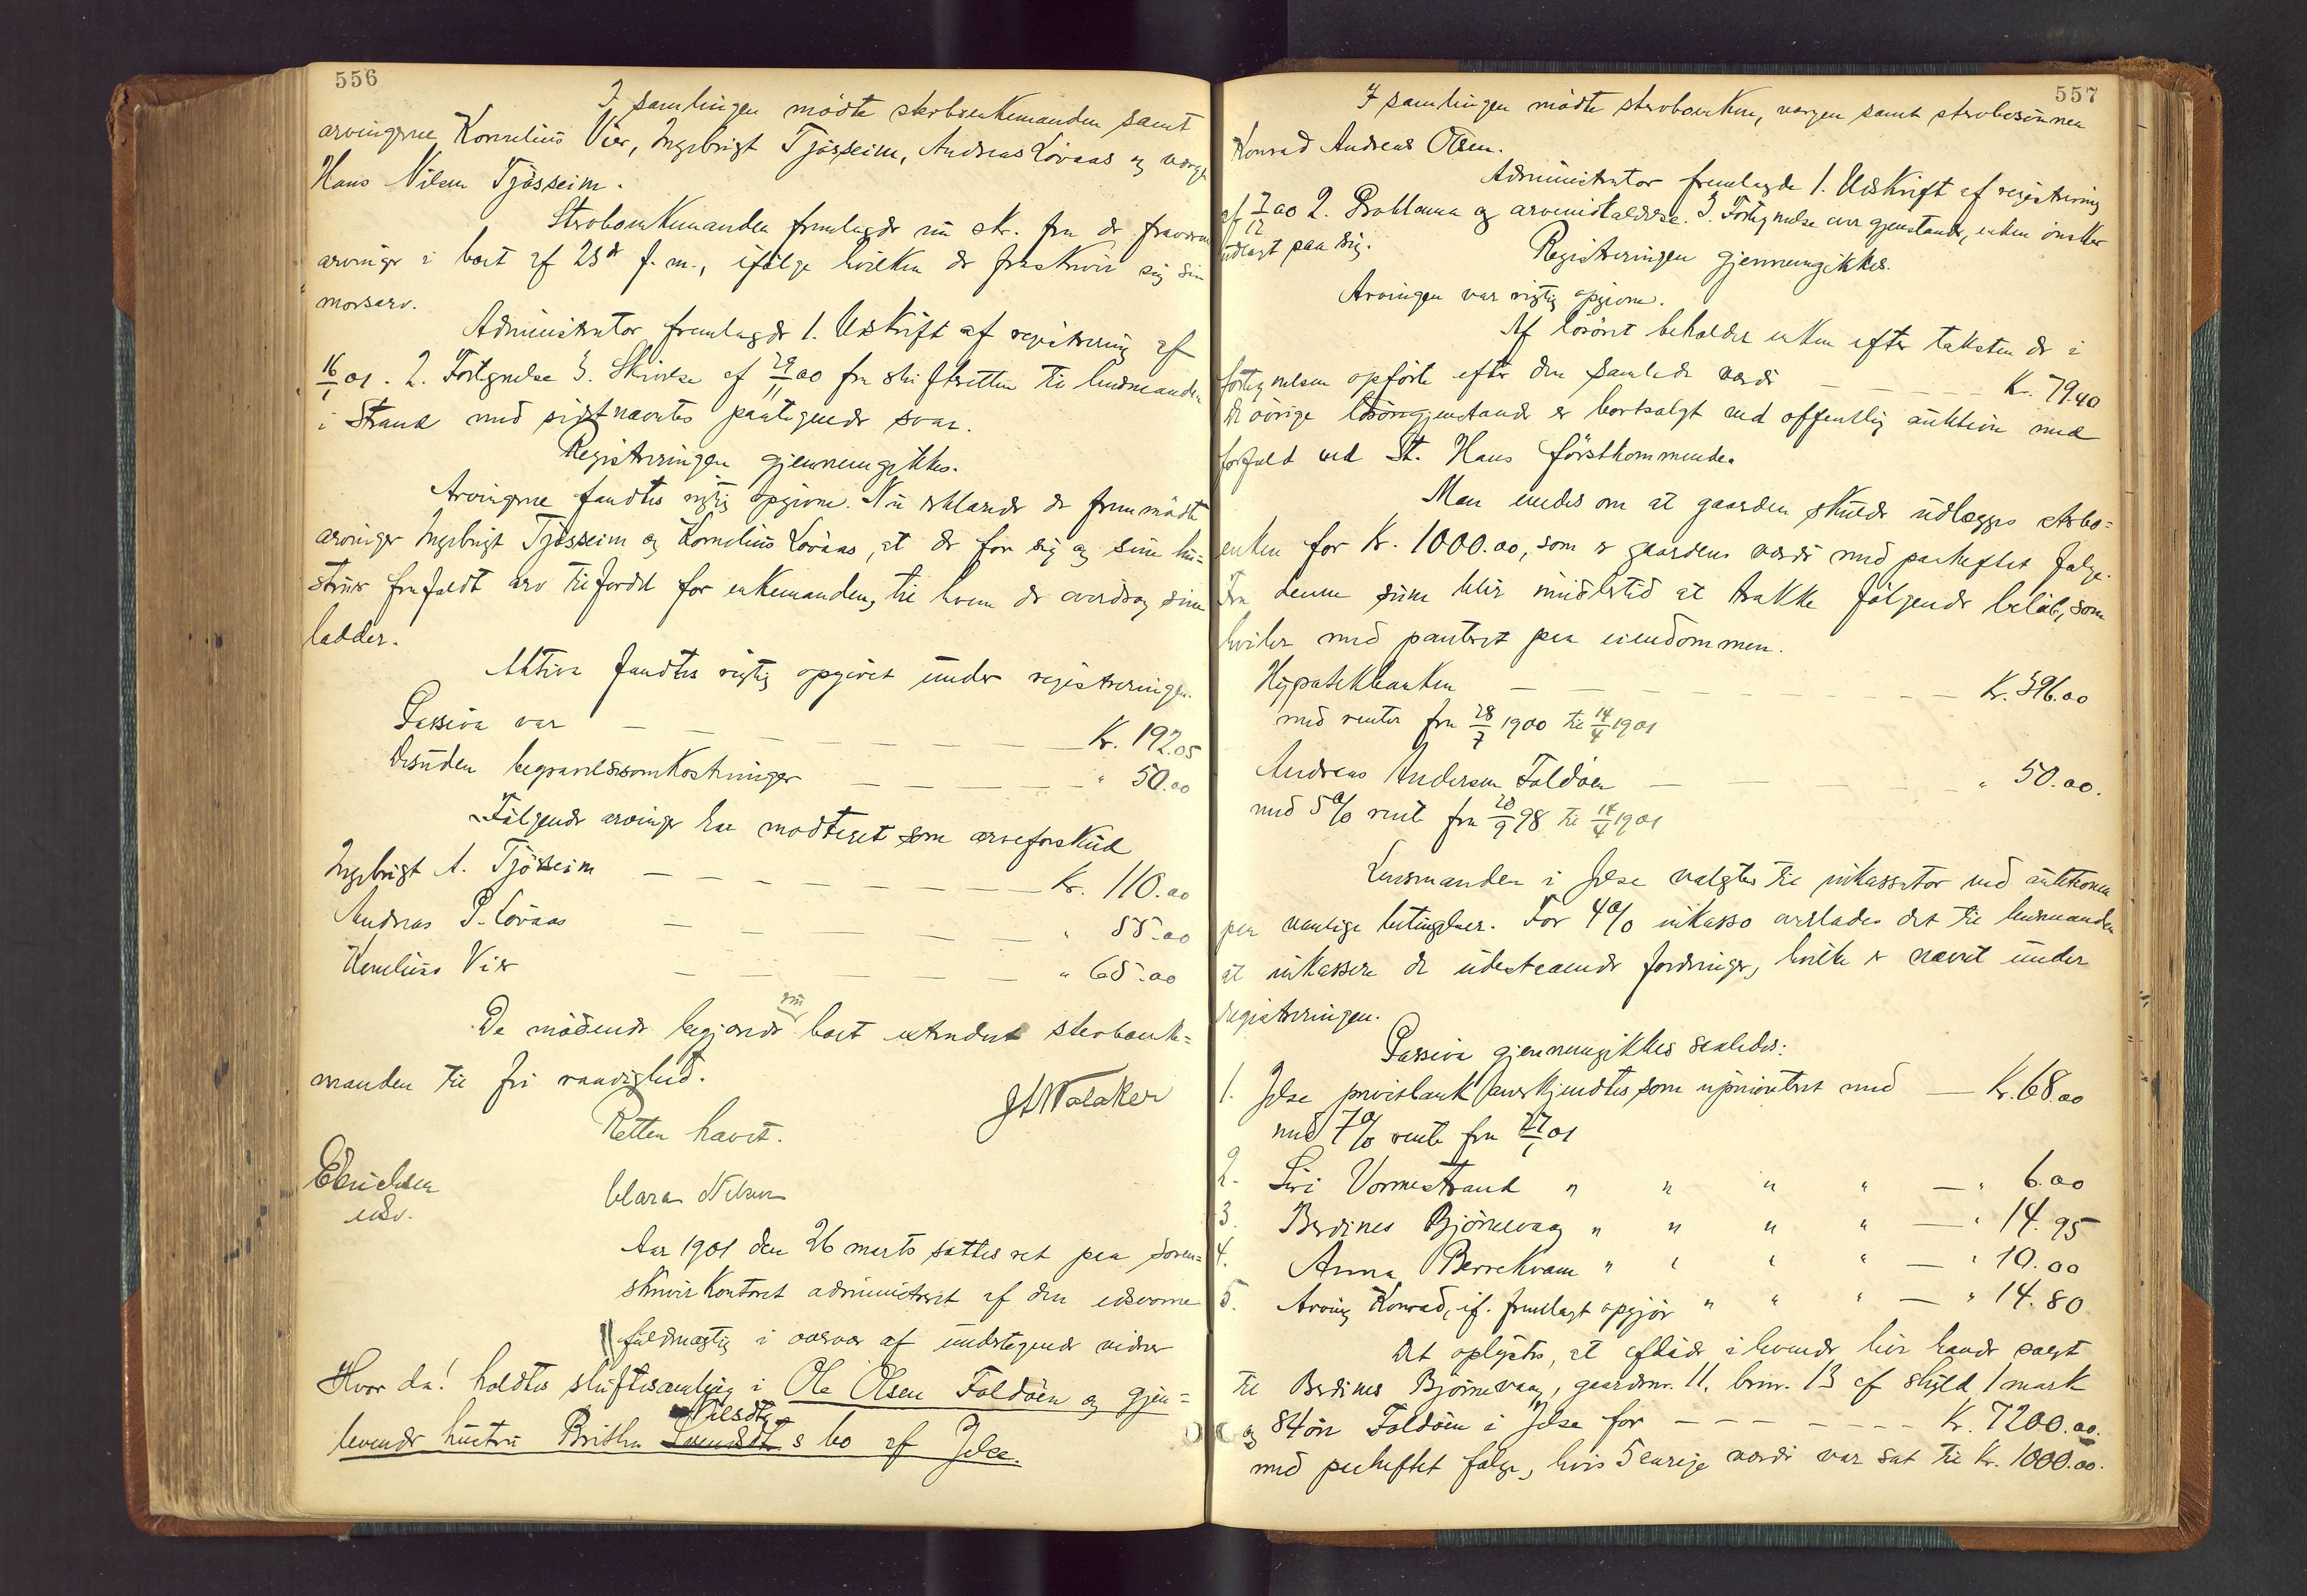 556
I samlingen mödte sterboenkemanden samt
arvingerne Kornelius Vier, Ingebrigt Tjösseim, Andreas Lövaas og verge
Hans Nilsen Tjösseim.
Sterboenkemanden fremlagde nu skr. fra de fraværende
arvinger i boet af 28de f. m., ifölge hvilken de fraskriver sig sin
morsarv.
Administrator fremlagde 1. Udskrift af registrering af
16/1 01. 2. Fortegnelse 3. Skrivelse af 29/11 00 fra skifteretten til lensmanden
i Strand med sidstnævntes paategnede svar.
Registreringen gjennemgikkes.
Arvingerne fandtes rigtig opgivne. Nu erklærede de fremmödte
arvinger Ingebrigt Tjösseim og Kornelius Lövaas, at de for sig og sine hu=
struer frafaldt arv til fordel for enkemanden, til hvem de overdrog sine
lodder.
Aktiva fandtes rigtig opgivet under registreringen.
Passiva var — — — — — — — Kr. 192.05
Desuden begravelsesomkostninger — — — — — " 50.00
Fölgende arvinger har modtaget som arveforskud
Ingebrigt A. Tjösseim — — — — — — — — Kr. 110.00
Andreas P. Lövaas — — — — — — " 55.00
Kornelius Vier — — — — — " 65.00
De mödende begjærede nu boet extraderet sterboenke=
manden til fri raadighed.
Retten hævet.
J A Walaker
E Erichsen
edsv.
Clara Nilsen
Aar 1901 den 26 marts sattes ret paa soren=
skriverkontoret administreret af den edsvorne
fuldmægtig i overvær af undertegnede vidner
Hvor da! holdtes skiftesamling i Ole Olsen Foldöen og gjen=
Nilsdtr
levende hustru Britha s bo af Jelse.
557
I samlingen mödte sterboenken, vergen samt sterbosönnen
Konrad Andreas Olsen.
Administrator fremlagde 1. Udskrift af registrering
af 7/12 00 2. Proklama og arveindkaldelse. 3. Fortegnelse over gjenstande, enken önsker
udlagt paa sig.
Registreringen gjennemgikkes.
Arvingen var rigtig opgivne.
Af lösöret beholder enken efter taksten de i
fortegnelsen opförte efter den samlede værdi — — — — Kr. 79.40
De övrige lösöregjenstande er bortsolgt ved offentlig auktion med
forfald ved St. Hans förstkommende.
Man enedes om at gaarden skulde udlægges sterbo=
enken for Kr. 1000.00, som er gaardens værdi med paaheftet folge.
Fra denne sum blir imidlertid at trække fölgende belöb, som
hviler med panteret paa eiendommen.
Hypotekbanken — — — — — — — Kr. 396.00
med renter fra 28/7 1900 til 14/4 1901
Andreas Andersen Foldöen — — — — " 50.00.
med 5% rente fra 20/9 98 til 14/4 1901
Lensmanden i Jelse valgtes til inkassator ved auktionen
paa vanlige betingelser. For 4% inkasso overlades det til lensmanden
at inkassere de udestaaende fordringer, hvilke er nævnt under
registreringen.
Passiva gjennemgikkes saaledes:
1. Jelse privatbank anerkjendtes som uprioriteret med — Kr. 68.00
med 7% rente fra 27/1 01
2. Siri Vormestrand " " " " — " 6.00
3. Berdines Björnevaag " " " " — " 14.95
4. Anna Berrekvam " " " " — " 10.00
5. Arving Konrad, if. fremlagt opgjör " " " — " 14.80
Det oplystes, at afdöde i levende live havde solgt
til Berdines Björnevaag, gaardsnr. 11, brnr. 13 af skyld 1 mark
og 84 öre Foldöen i Jelse for — — — — — — Kr. 7200.00.
med paaheftet folge, hvis 5 aarige værdi var sat til Kr. 1000.00.